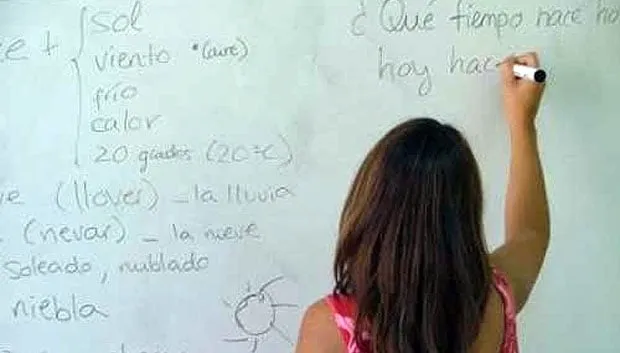 e + { sol
viento • (aire)
frío
calor
20 grados (20ºC)
e (llover) – la lluvia
(nevar) – la nieve
soleado, nublado
niebla
¿Qué tiempo hace ho
hoy hac